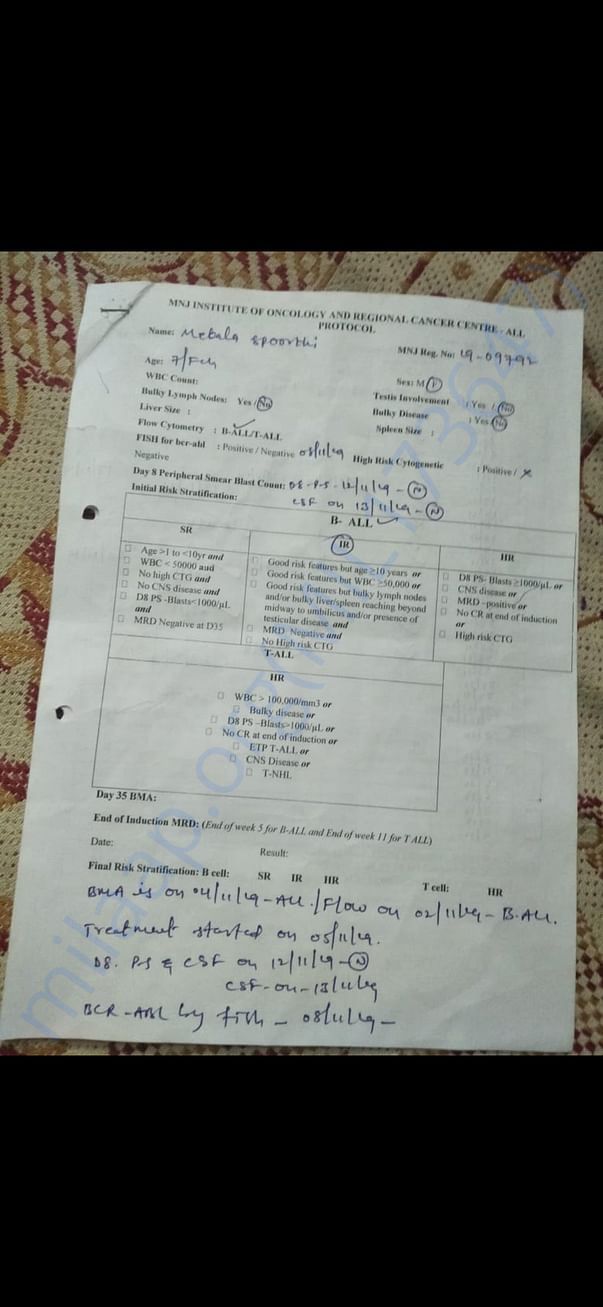 MNJ INSTITUTE OF ONCOLOGY AND REGIONAL CANCER CENTRE - ALL
PROTOCOL
Name: Mekala Spoorthi
MNJ Reg. No: 19-09792
Age: 7/Feh
Sex: M/F
WBC Count:
Testis Involvement : Yes / No
Bulky Lymph Nodes: Yes / No
Bulky Disease : Yes / No
Liver Size :
Spleen Size :
Flow Cytometry : B-ALL/T-ALL
FISH for bcr-abl : Positive / Negative 08/11/19
High Risk Cytogenetic : Positive /
Negative
Day 8 Peripheral Smear Blast Count: D8-P-S-12/11/19 - N
Initial Risk Stratification: CSF on 13/11/19 - N
B- ALL
SR
IR
HR
Age >1 to <10yr and
WBC < 50000 and
No high CTG and
No CNS disease and
D8 PS -Blasts<1000/µL
and
MRD Negative at D35
Good risk features but age ≥10 years or
Good risk features but WBC ≥50,000 or
Good risk features but bulky lymph nodes
and/or bulky liver/spleen reaching beyond
midway to umbilicus and/or presence of
testicular disease and
MRD- Negative and
No High risk CTG
D8 PS- Blasts ≥1000/µL or
CNS disease or
MRD -positive or
No CR at end of induction
or
High risk CTG
T-ALL
HR
WBC > 100,000/mm3 or
Bulky disease or
D8 PS -Blasts>1000/µL or
No CR at end of induction or
ETP T-ALL or
CNS Disease or
T-NHL
Day 35 BMA:
End of Induction MRD: (End of week 5 for B-ALL and End of week 11 for T ALL)
Date:
Result:
Final Risk Stratification: B cell: SR IR HR T cell: HR
BMA is on 04/11/19 - ALL / Flow on 02/11/19 - B-ALL.
Treatment started on 05/11/19.
D8. P-S & CSF on 12/11/19 - N
CSF - on - 13/11/19
BCR-ABL by fish - 08/11/19 -
milaap.org